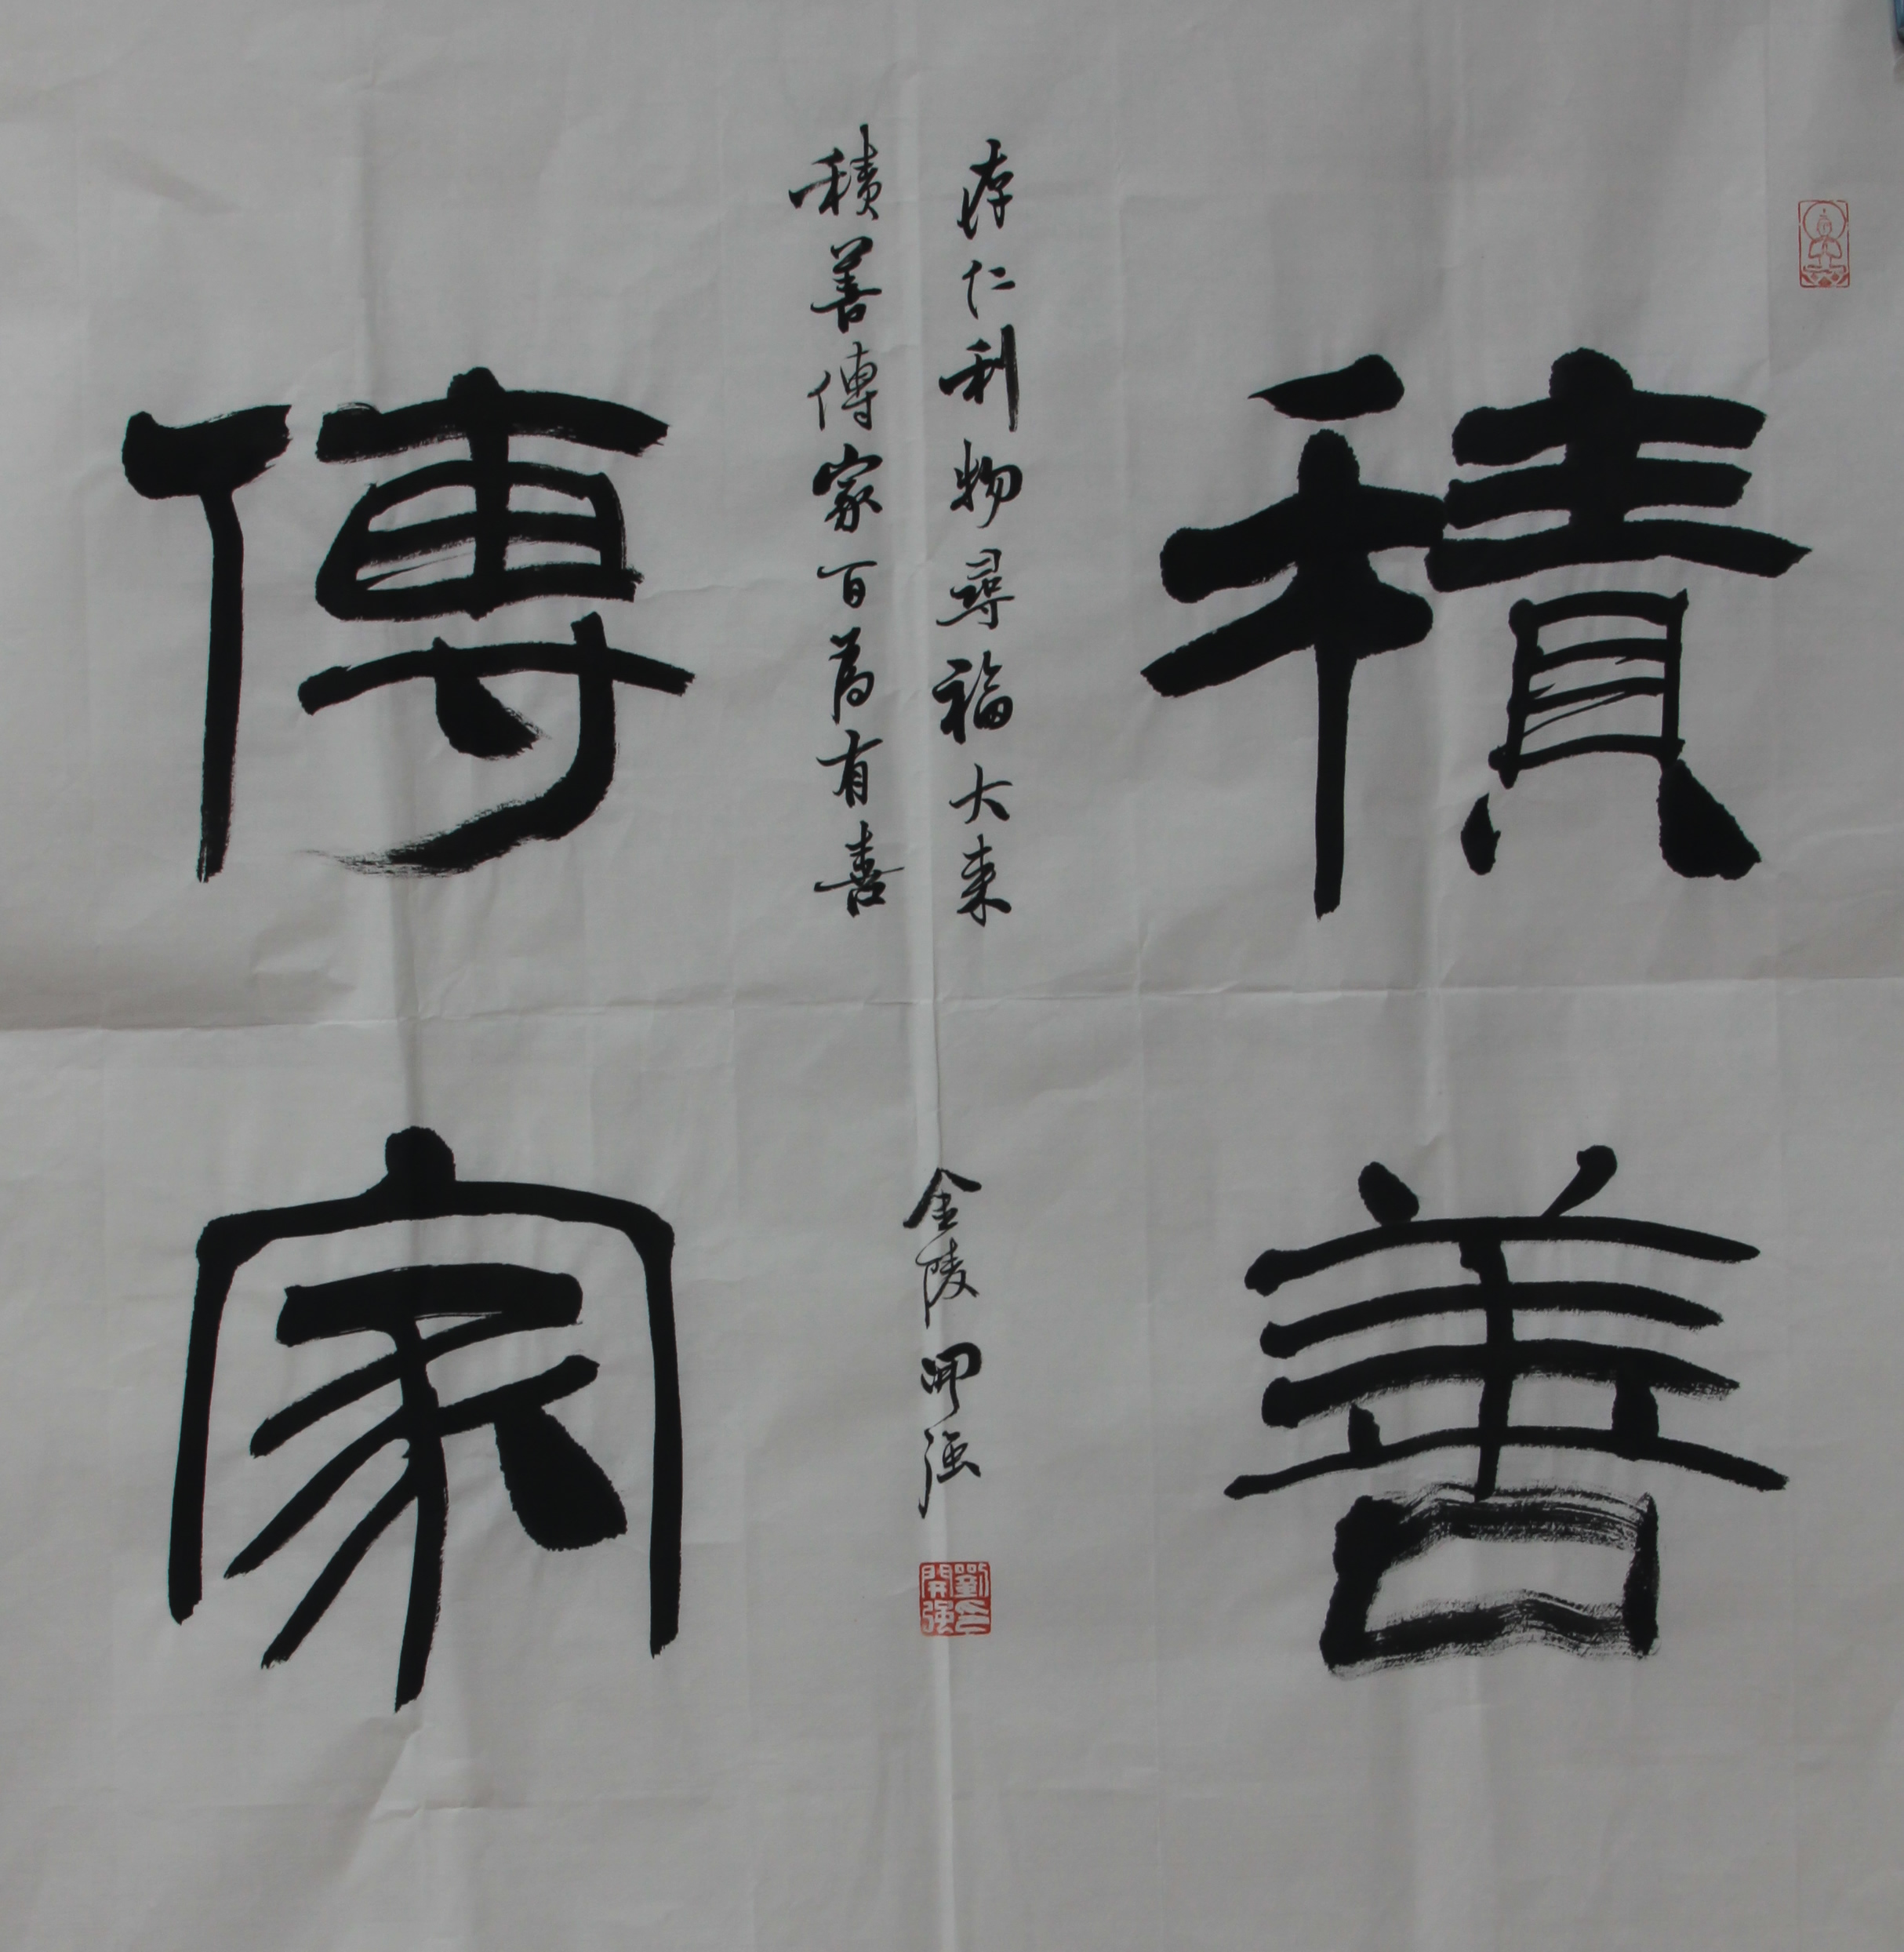 積善
存仁利物尋福大来
積善傳家百為有喜
金陵開强
劉
開强
傳家